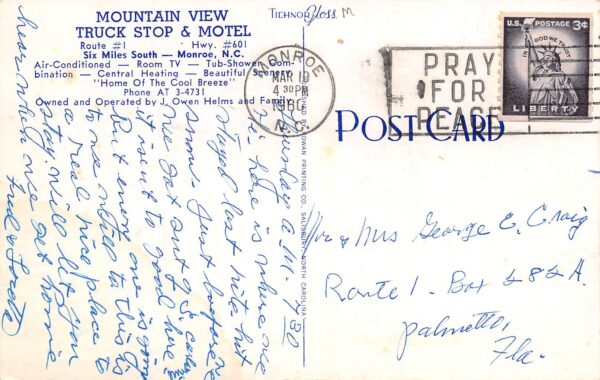 MOUNTAIN VIEW
TRUCK STOP & MOTEL
Route #1 Hwy. #601
Six Miles South — Monroe, N.C.
Air-Conditioned — Room TV — Tub-Shower Com-
bination — Central Heating — Beautiful Scenery
"Home Of The Cool Breeze"
Phone AT 3-4731
Owned and Operated by J. Owen Helms and Family
TICHNOR Gloss M
MONROE
MAR 10
4 30 PM
N.C.
PRAY
FOR
PEACE
U.S. POSTAGE 3¢
IN GOD WE TRUST
LIBERTY
POST CARD
ROWAN PRINTING CO. SALISBURY, NORTH CAROLINA
Thursday a.m. 7:30
Hi: Here is where we
stayed last nite but
snow. Just before
we get out of S. Car
it isn't to good here
But every one is going
so we will to. This is
a real nice place to
stay will let you
hear when we get home
Fred & Loretta
Mr & Mrs George E. Craig
Route 1. Box 484A.
Palmetto,
Fla.